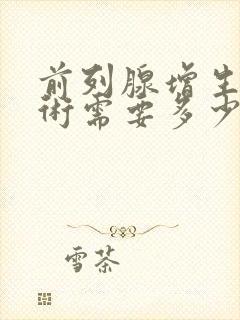 前列腺增生
术需要多少
雪茶